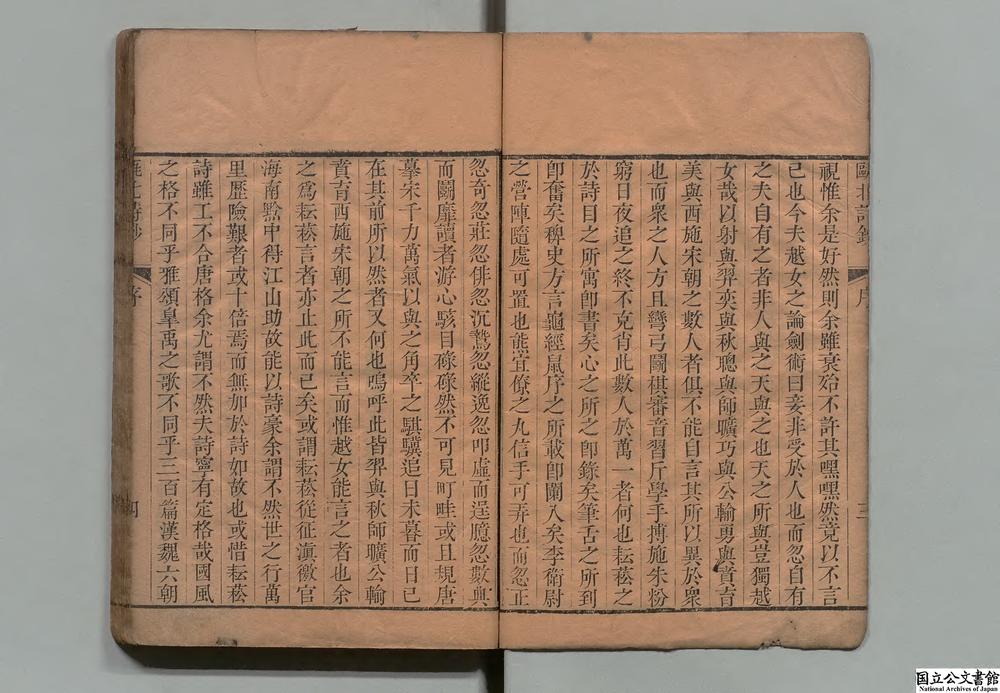 甌北詩鈔 序 三
視惟余是好然則余雖衰殆不許其嘿嘿然竟以不言
己也今夫越女之論劍術曰妾非受於人也而忽自有
之夫自有之者非人與之天與之也天之所與豈獨越
女哉以射與羿奕與秋聰與師曠巧與公輸勇與賁育
美與西施宋朝之數人者俱不能自言其所以異於衆
也而衆之人方且彎弓鬭碁審音習斤學手搏施朱粉
窮日夜追之終不克肖此數人於萬一者何也耘菘之
於詩目之所寓卽書矣心之所之卽錄矣筆舌之所到
卽奮矣稗史方言龜經鼠序之所載卽闌入矣李衛尉
之營陣隨處可置也熊宜僚之丸信手可弄也而忽正
忽奇忽莊忽俳忽沉鷙忽縱逸忽叩虛而逞臆忽數典
而鬭靡讀者游心駭目碌碌然不可見町畦或且規唐
摹宋千力萬氣以與之角卒之騏驥追日未暮而日已
在其前所以然者又何也嗚呼此皆羿與秋師曠公輸
賁育西施宋朝之所不能言而惟越女能言之者也余
之爲耘菘言者亦止此而已矣或謂耘菘從征滇徼官
海南黔中得江山助故能以詩豪余謂不然世之行萬
里歷險艱者或十倍焉而無加於詩如故也或惜耘菘
詩雖工不合唐格余尤謂不然夫詩寧有定格哉國風
之格不同乎雅頌臯禹之歌不同乎三百篇漢魏六朝
甌北詩鈔 序 四
国立公文書館
National Archives of Japan